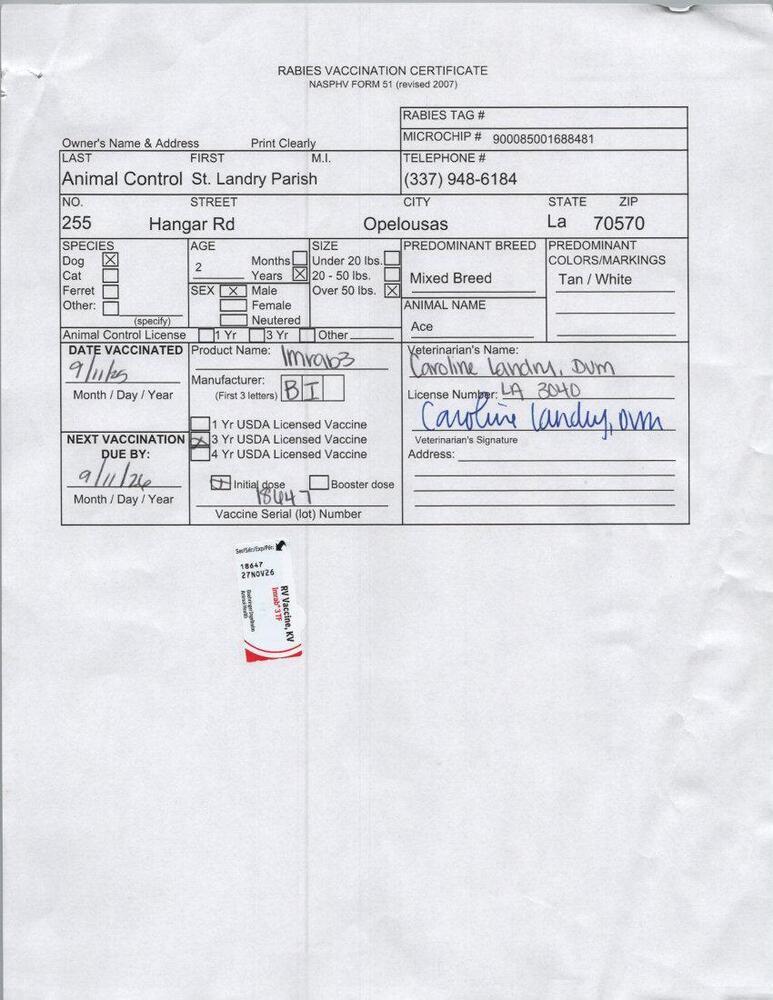 RABIES VACCINATION CERTIFICATE
NASPHV FORM 51 (revised 2007)
RABIES TAG #
Owner's Name & Address Print Clearly
MICROCHIP # 900085001688481
LAST FIRST M.I. TELEPHONE #
Animal Control St. Landry Parish (337) 948-6184
NO. STREET CITY STATE ZIP
255 Hangar Rd Opelousas La 70570
SPECIES AGE SIZE PREDOMINANT BREED PREDOMINANT
Dog X Months Under 20 lbs. COLORS/MARKINGS
Cat 2 Years X 20 - 50 lbs. Mixed Breed Tan / White
Ferret SEX X Male Over 50 lbs. X
Other: Female ANIMAL NAME
(specify) Neutered Ace
Animal Control License 1 Yr 3 Yr Other
DATE VACCINATED Product Name: Imrab3 Veterinarian's Name:
9/11/25 Caroline Landry, DVM
Manufacturer: BI
Month / Day / Year (First 3 letters) License Number: LA 3040
1 Yr USDA Licensed Vaccine Caroline Landry, DVM
NEXT VACCINATION X 3 Yr USDA Licensed Vaccine Veterinarian's Signature
DUE BY: 4 Yr USDA Licensed Vaccine Address:
9/11/26 Initial dose Booster dose
Month / Day / Year 18647
Vaccine Serial (lot) Number
18647
27NOV26
RV Vaccine, KV
Imrab® 3 TF
Boehringer Ingelheim
Animal Health